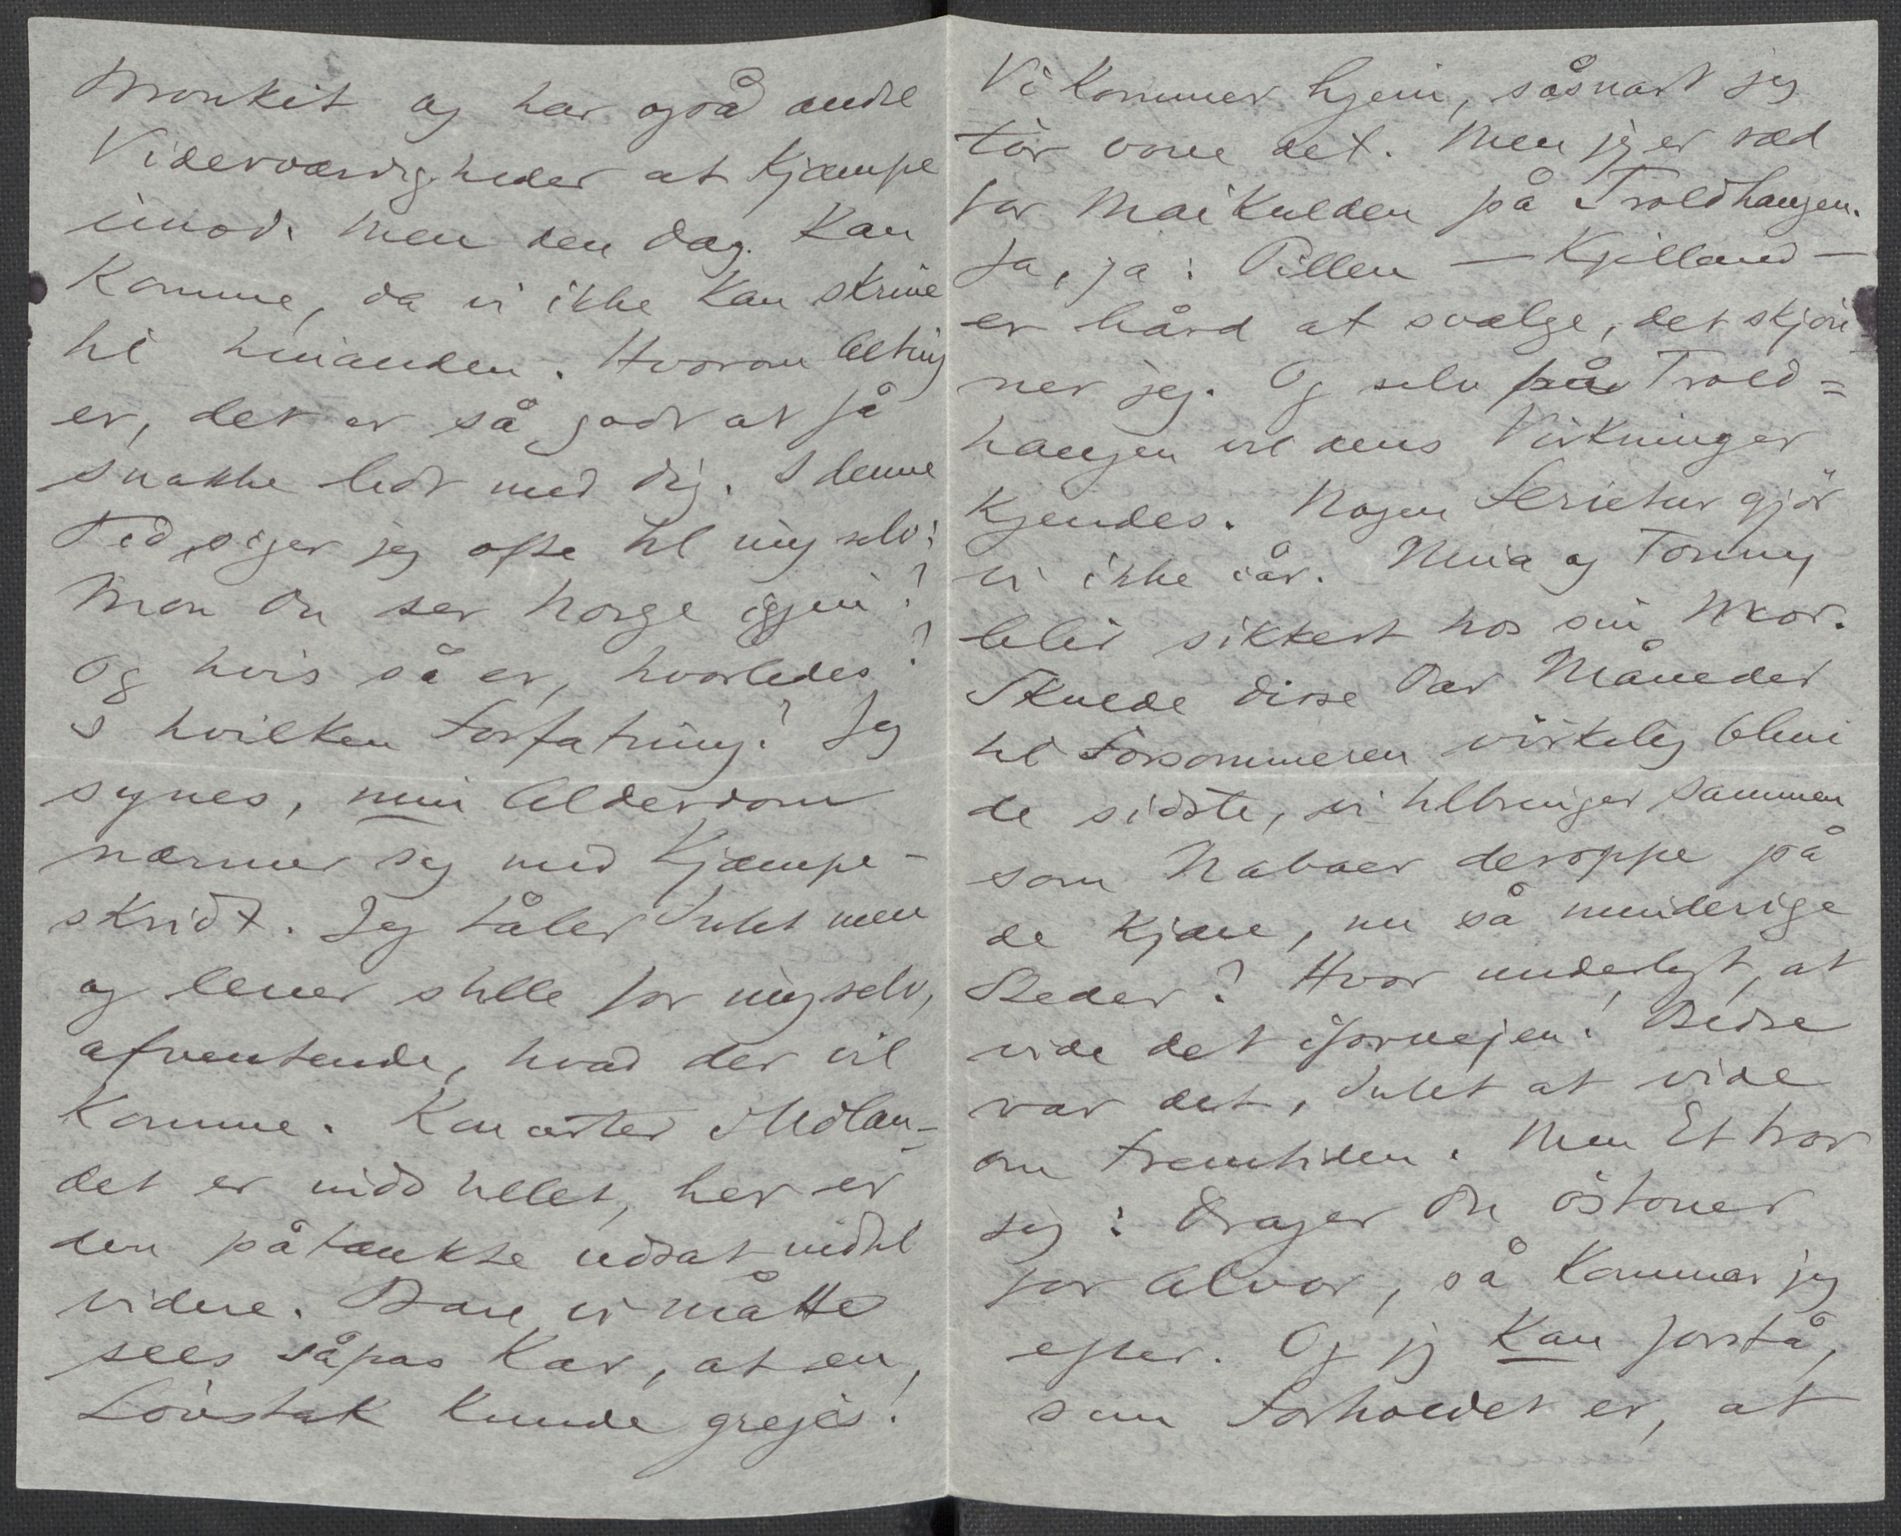 Bronkit og har også andre
Viderværdigheder at kjæmpe
imod. Men den Dag kan
komme, da vi ikke kan skrive
til hinanden. Hvorom Alting
er, det er så godt at få
snakke lidt med Dig. I denne
Tid siger jeg ofte til mig selv:
Mon Du ser Norge igjen?
Og hvis så er, hvorledes?
I hvilken Forfatning? Jeg
synes, min Alderdom
nærmer sig med Kjæmpe-
skridt. Jeg tåler Intet mer
og lever stille for mig selv,
afventende, hvad der vil
komme. Koncerter i Udlan-
det er indstillet, her er
den påtænkte udsat indtil
videre. Bare vi måtte
sees såpas Kar, at en
Løvstak kunde grejes!
Vi kommer hjem, såsnart jeg
tør vove det. Men jeg er ræd
for Maikulden på Troldhaugen.
Ja, ja: Pillen – Kjelland –
er hård at svælge, det skjøn
ner jeg. Og selv på Trold=
haugen vil dens Virkninger
kjendes. Nogen Ferietur gjør
vi ikke iår. Mia og Tonny
blir sikkert hos sin Mor.
Skulde disse Par Måneder
til Forsommeren virkelig blive
de sidste, vi tilbringer sammen
som Naboer deroppe på
de kjære, nu så minderige
Steder? Hvor underligt, at
vide det iforvejen! Bedre
var det, Intet at vide
om Fremtiden. Men Et tror
jeg: Drager Du østover
for Alvor, så kommer jeg
efter. Og jeg kan forstå,
som Forholdet er, at